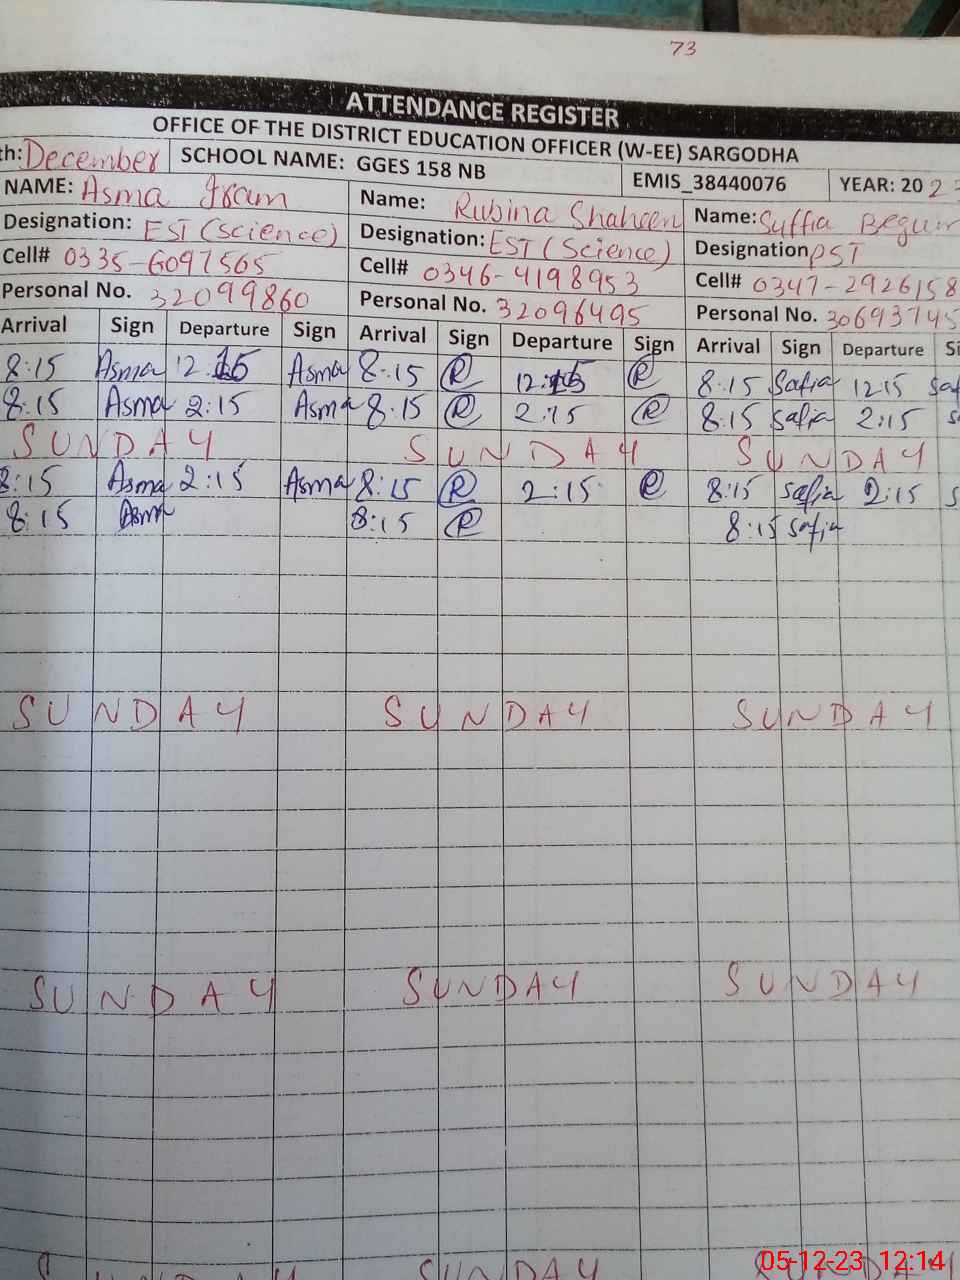 73
ATTENDANCE REGISTER
OFFICE OF THE DISTRICT EDUCATION OFFICER (W-EE) SARGODHA
th: December SCHOOL NAME: GGES 158 NB EMIS_38440076 YEAR: 202
NAME: Asma Iram Name: Rubina Shaheen Name: Suffia Begum
Designation: EST (Science) Designation: EST (Science) Designation PST
Cell# 0335-6097565 Cell# 0346-4198953 Cell# 0347-2926158
Personal No. 32099860 Personal No. 32096495 Personal No. 30693745
Arrival Sign Departure Sign Arrival Sign Departure Sign Arrival Sign Departure Si
8:15 Asma 12:15 Asma 8:15 R 12:15 R 8:15 Safia 1215 Saf
8:15 Asma 2:15 Asma 8:15 R 2:15 R 8:15 Safia 2:15 S
SUNDAY SUNDAY SUNDAY
8:15 Asma 2:15 Asma 8:15 R 2:15 R 8:15 Safia 2:15 S
8:15 Asma 8:15 R 8:15 Safia
SUNDAY SUNDAY SUNDAY
SUNDAY SUNDAY SUNDAY
SUNDAY SUNDAY SUNDAY
05-12-23 12:14